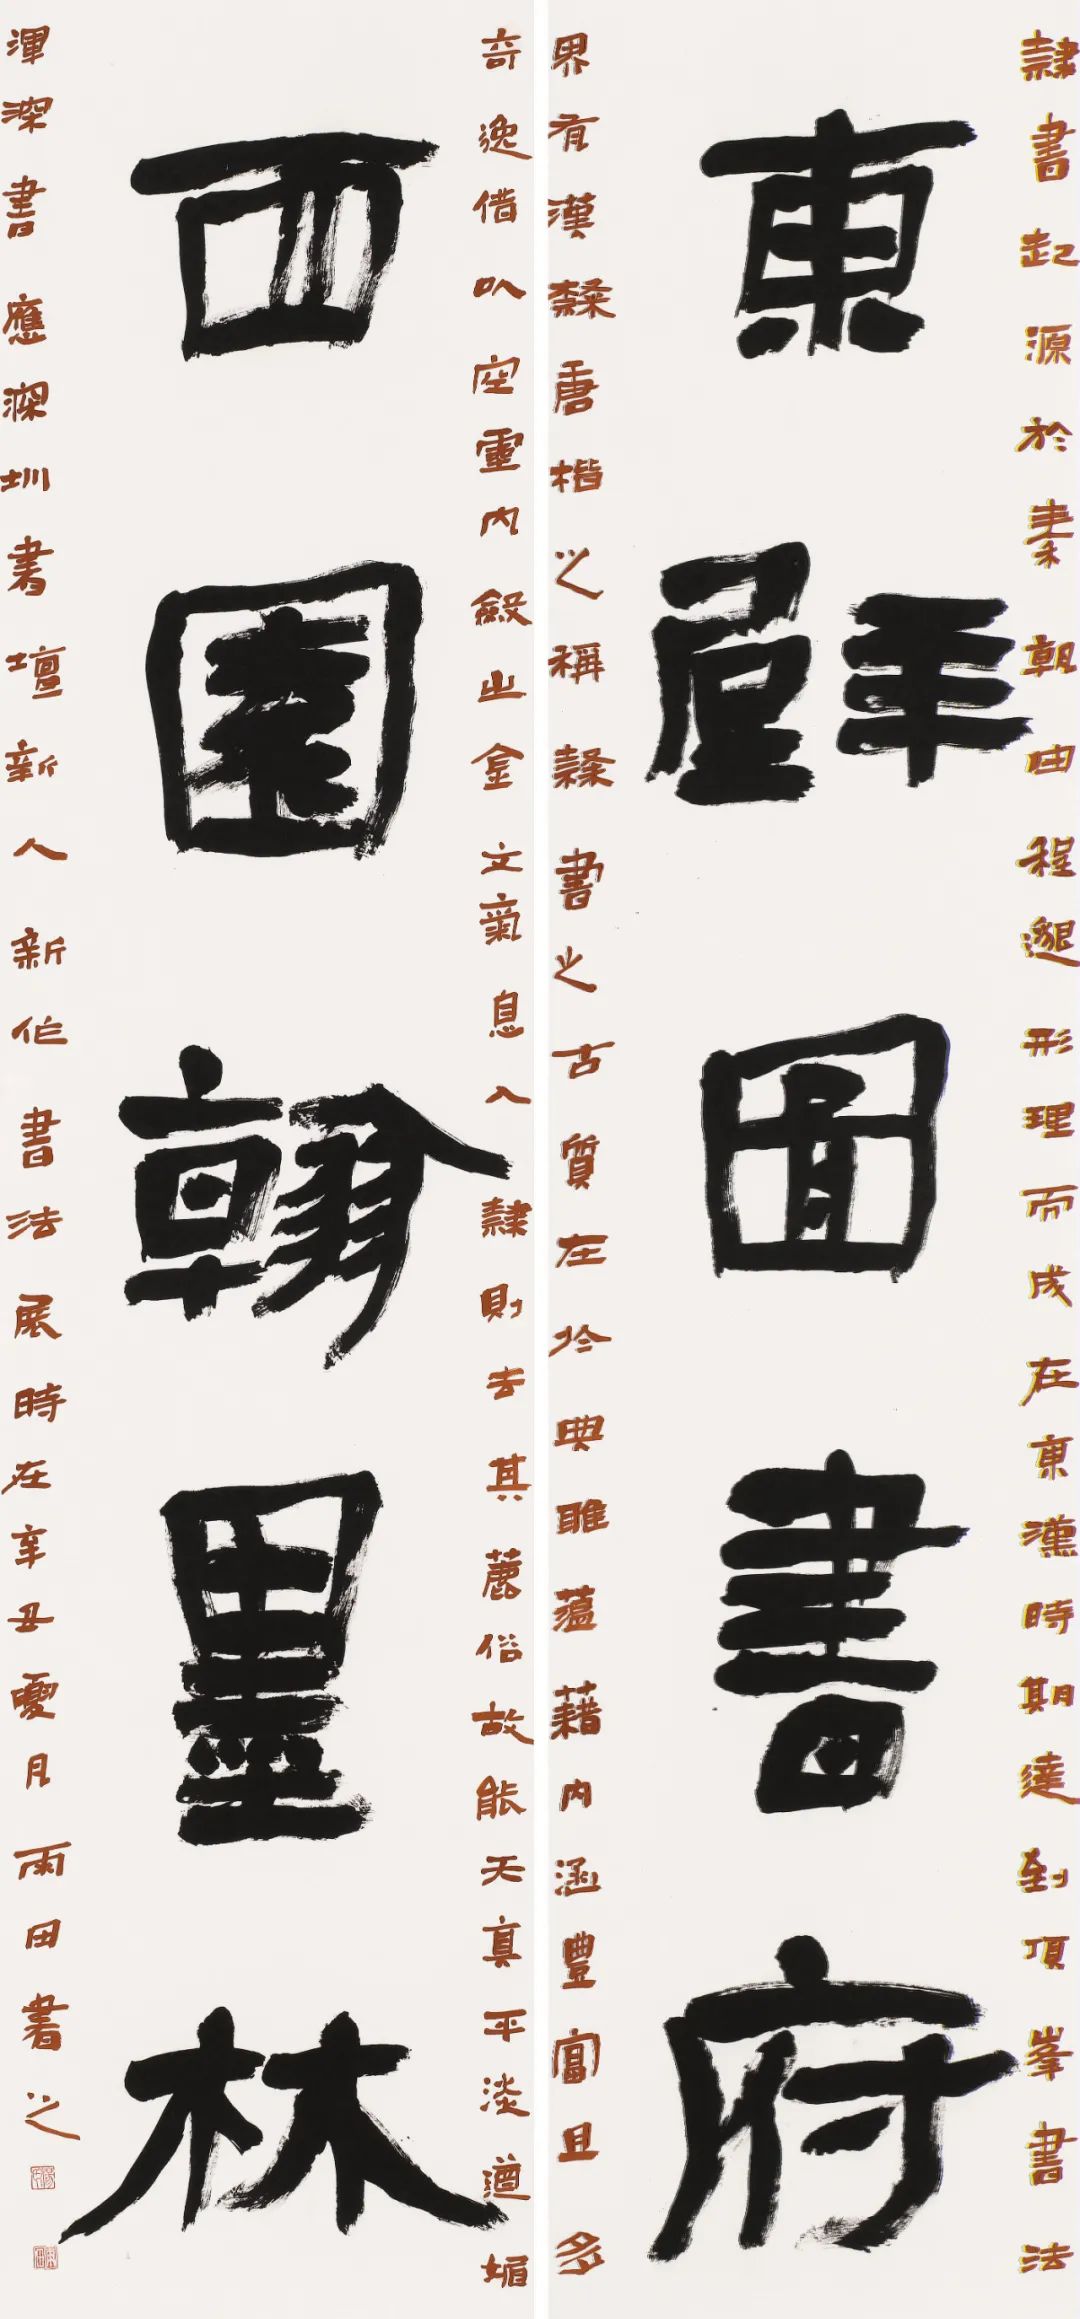 隸書起源於秦朝由程邈形理而成在東漢時期達到頂峯書法
東壁圖書府
界有漢隸唐楷之稱隸書之古質在於典雅蘊藉内涵豐富且多
奇逸借以空靈内斂出金文氣息入隸則去其俗故能天真平淡遒媚
西園翰墨林
渾深書應深圳書壇新人新作書法展時在辛丑夏月雨田書之